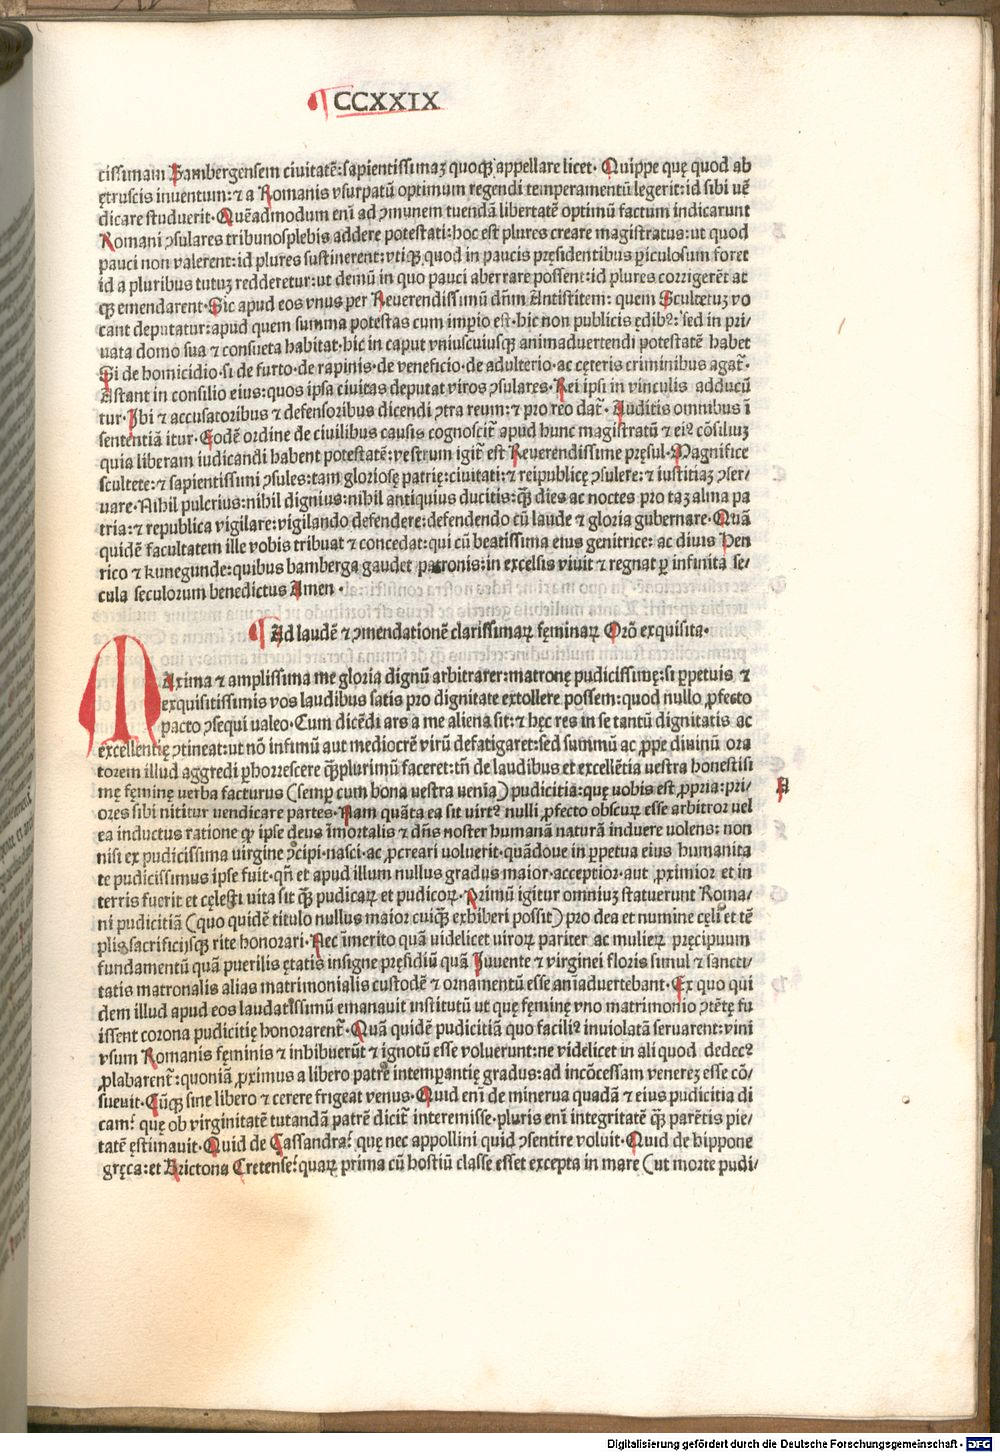 CCXXIX
tissimam Bambergensem ciuitatē: sapientissimaꝫ quoqꝫ appellare licet. Quippe quę quod ab
ętruscis inuentum: ⁊ a Romanis vsurpatū optimum regendi temperamentū legerit: id sibi vē
dicare studuerit. Quēadmodum enī ad ꝯmunem tuendā libertatē optimū factum indicarunt
Romani ꝯsulares tribunosplebis addere potestati: hoc est plures creare magistratus: ut quod
pauci non valerent: id plures sustinerent: vtiqꝫ quod in paucis pręsidentibus ꝑiculosum foret
id a pluribus tutuꝫ redderetur: ut demū in quo pauci aberrare possent: id plures corrigerēt at
qꝫ emendarent. Sic apud eos vnus per Reuerendissimū dn̄m Antistitem: quem Scultetuꝫ vo
cant deputatur: apud quem summa potestas cum imꝑio est. hic non publicis ędibꝰ: sed in pri/
uata domo sua ⁊ consueta habitat. hic in caput vniuscuiusqꝫ animaduertendi potestatē habet
Si de homicidio. si de furto. de rapinis. de veneficio. de adulterio. ac cęteris criminibus agat᷑.
Astant in consilio eius: quos ipsa ciuitas deputat viros ꝯsulares. Rei ipsi in vinculis adducū
tur. Ibi ⁊ accusatoribus ⁊ defensoribus dicendi ꝯtra reum: ⁊ pro reo dat᷑. Auditis omnibus ī
sententiā itur. Eodē ordine de ciuilibus causis cognoscit᷑ apud hunc magistratū ⁊ eiꝰ cōsiliuꝫ
quia liberam iudicandi habent potestatē: vestrum igit᷑ est Reuerendissime pręsul. Magnifice
scultete: ⁊ sapientissimi ꝯsules: tam gloriosę patrię: ciuitati: ⁊ reipublicę ꝯsulere: ⁊ iustitiaꝫ ꝯser/
uare. Nihil pulcrius: nihil dignius: nihil antiquius ducitis: qꝫ̄ dies ac noctes pro taꝫ alma pa
tria: ⁊ republica vigilare: vigilando defendere: defendendo cū laude ⁊ gloria gubernare. Quā
quidē facultatem ille vobis tribuat ⁊ concedat: qui cū beatissima eius genitrice: ac diuis Hen
rico ⁊ kunegunde: quibus bamberga gaudet patronis: in excelsis viuit ⁊ regnat ꝑ infinita se/
cula seculorum benedictus Amen.
Ad laudē ⁊ ꝯmendationē clarissimaꝝ fęminaꝝ Orō exquisita.
MAxima ⁊ amplissima me gloria dignū arbitrarer: matronę pudicissimę: si ꝑpetuis ⁊
exquisitissimis vos laudibus satis pro dignitate extollere possem: quod nullo ꝓfecto
pacto ꝯsequi valeo. Cum dicēdi ars a me aliena sit: ⁊ hęc res in se tantū dignitatis ac
excellentię ꝯtineat: ut nō infimū aut mediocrē virū defatigaret: sed summū ac ꝓpe diuinū ora
torem illud aggredi ꝑhorrescere qꝫ̄plurimū faceret: tn̄ de laudibus et excellētia vestra honestissi
mę fęminę verba facturus (semꝑ cum bona vestra venia) pudicitia: quę vobis est ꝓpria: pri/
ores sibi nititur vendicare partes. Nam quāta ea sit virtꝰ nulli ꝓfecto obscuꝝ esse arbitror vel
ea inductus ratione qꝫ ipse deus īmortalis ⁊ dn̄s noster humanā naturā induere volens: non
nisi ex pudicissima virgine ꝯcipi. nasci. ac ꝓcreari voluerit. quādoue in ꝑpetua eius humanita
te pudicissimus ipse fuit. qn̄ et apud illum nullus gradus maior. acceptior. aut ꝓximior et in
terris fuerit et cęlesti vita sit qꝫ̄ pudicaꝝ et pudicoꝝ. Primū igitur omniuꝫ statuerunt Roma/
ni pudicitiā (quo quidē titulo nullus maior cuiqꝫ exhiberi possit) pro dea et numine cęli et tē
plis sacrificijsqꝫ rite honorari. Nec īmerito quā videlicet viroꝝ pariter ac mulieꝝ pręcipuum
fundamentū quā puerilis ętatis insigne pręsidiū quā Iuuente ⁊ virginei floris simul ⁊ sancti/
tatis matronalis alias matrimonialis custodē ⁊ ornamentū esse anīaduertebant. Ex quo qui
dem illud apud eos laudatissimū emanauit institutū ut quę fęminę vno matrimonio ꝯtētę fu
issent corona pudicitię honorarent᷑. Quā quidē pudicitiā quo faciliꝰ inuiolatā seruarent: vini
vsum Romanis fęminis ⁊ inhibuerūt ⁊ ignotū esse voluerunt: ne videlicet in aliquod dedecꝰ
ꝓlabarent᷑: quoniā ꝓximus a libero patre intemꝑantię gradus: ad incōcessam venereꝫ esse cō/
sueuit. Cūqꝫ sine libero ⁊ cerere frigeat venus. Quid enī de minerua quadā ⁊ eius pudicitia di
cam? quę ob virginitatē tutandā patrē dicit᷑ interemisse. pluris enī integritatē qꝫ̄ parētis pie/
tatē ęstimauit. Quid de Cassandra? quę nec appollini quid ꝯsentire voluit. Quid de hippone
gręca: et Brictona Cretense? quaꝝ prima cū hostiū classe esset excepta in mare (ut morte pudi/
A
Digitalisierung gefördert durch die Deutsche Forschungsgemeinschaft - DFG